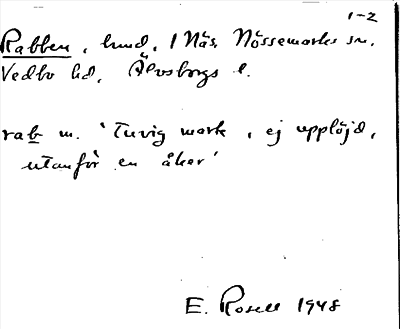 1-2
Rabben, hmd, 1 Näs, Nössemarks sn.
Vedbo hd, Älvsborgs l.
rab m. 'Tuvig mark, ej upplöjd,
utanför en åker'
E. Rosell 1948